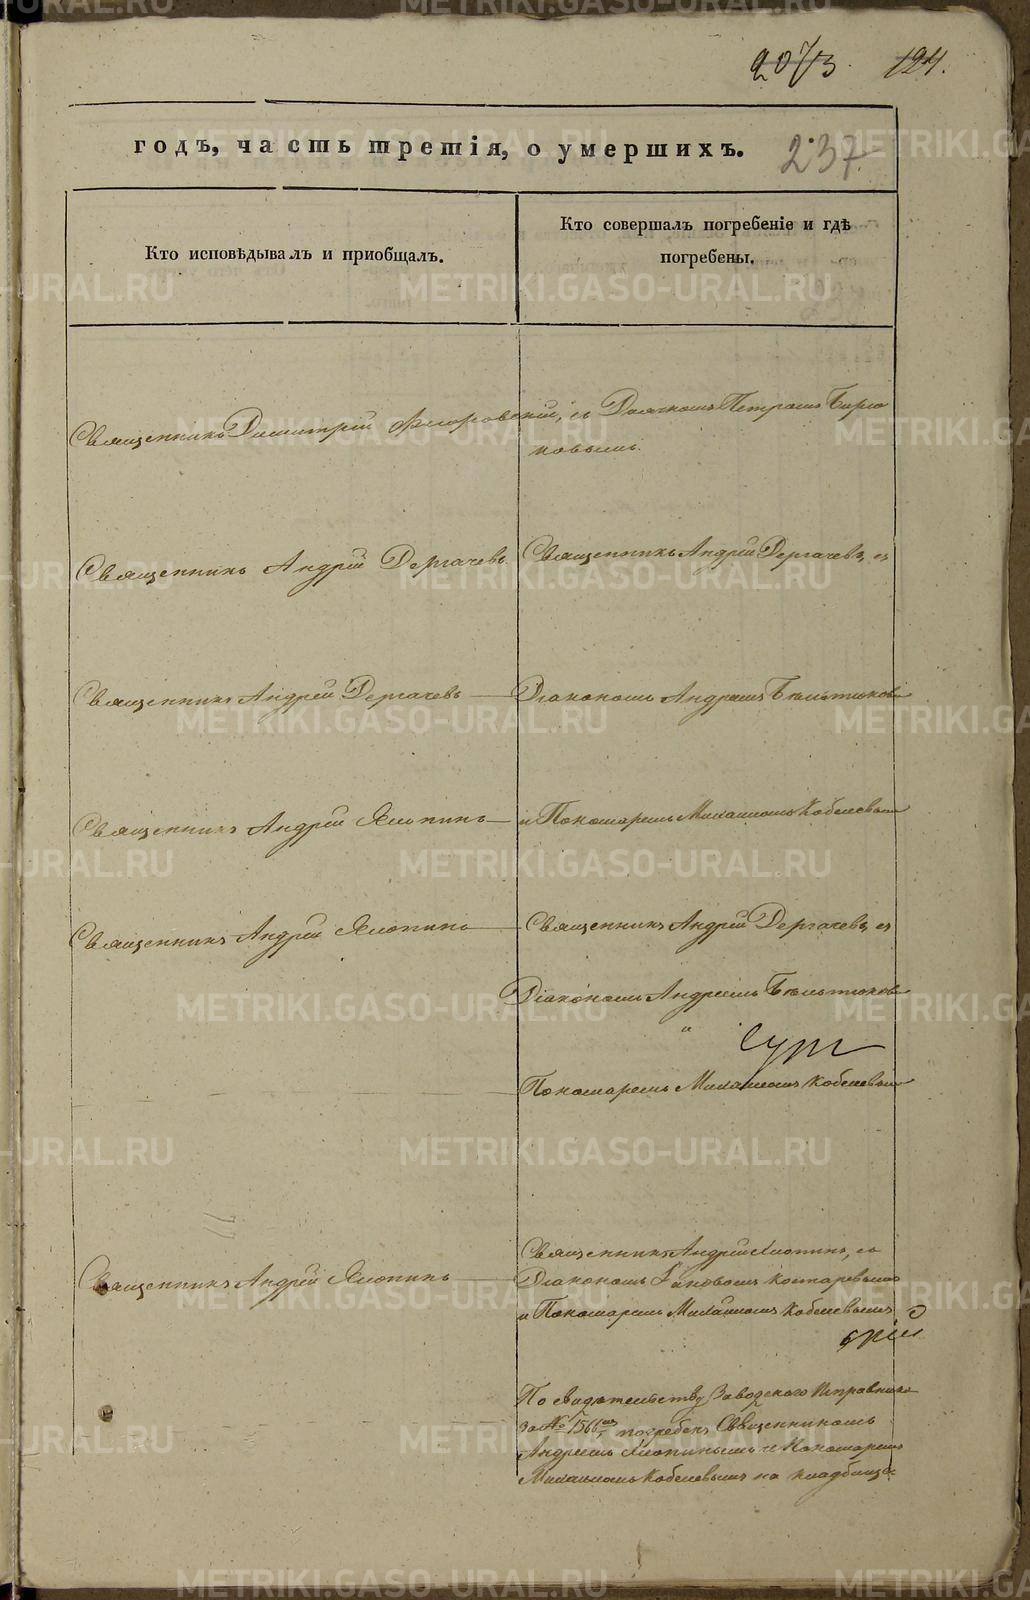 2073. 124.
годъ, часть третія, о умершихъ. 237.
Кто исповѣдывалъ и приобщалъ.
Кто совершалъ погребеніе и гдѣ
погребены.
Священникъ Димитрій Флоровскій, съ Дьячкомъ Петромъ Бирю
ковымъ.
Священникъ Андрей Дергачевъ. Священникъ Андрей Дергачевъ, съ
Священникъ Андрей Дергачевъ Діакономъ Андреемъ
Священникъ Андрей Хлопинъ и Пономаремъ Михаиломъ Кобелевым
Священникъ Андрей Хлопинъ Священникъ Андрей Дергачевъ, съ
Діакономъ Андреемъ
и
Пономаремъ Михаиломъ Кобелевым
Священникъ Андрей Хлопинъ, съ
Священникъ Андрей Хлопинъ Діакономъ Іаковомъ Костаревымъ
и Пономаремъ Михаиломъ Кобелевымъ
ерій
По свидѣтельству Заводскаго Исправника
за № 1566 погребенъ Священникомъ
Андреемъ Хлопинымъ и Пономаремъ
Михаиломъ Кобелевымъ на кладбище
METRIKI.GASO-URAL.RU